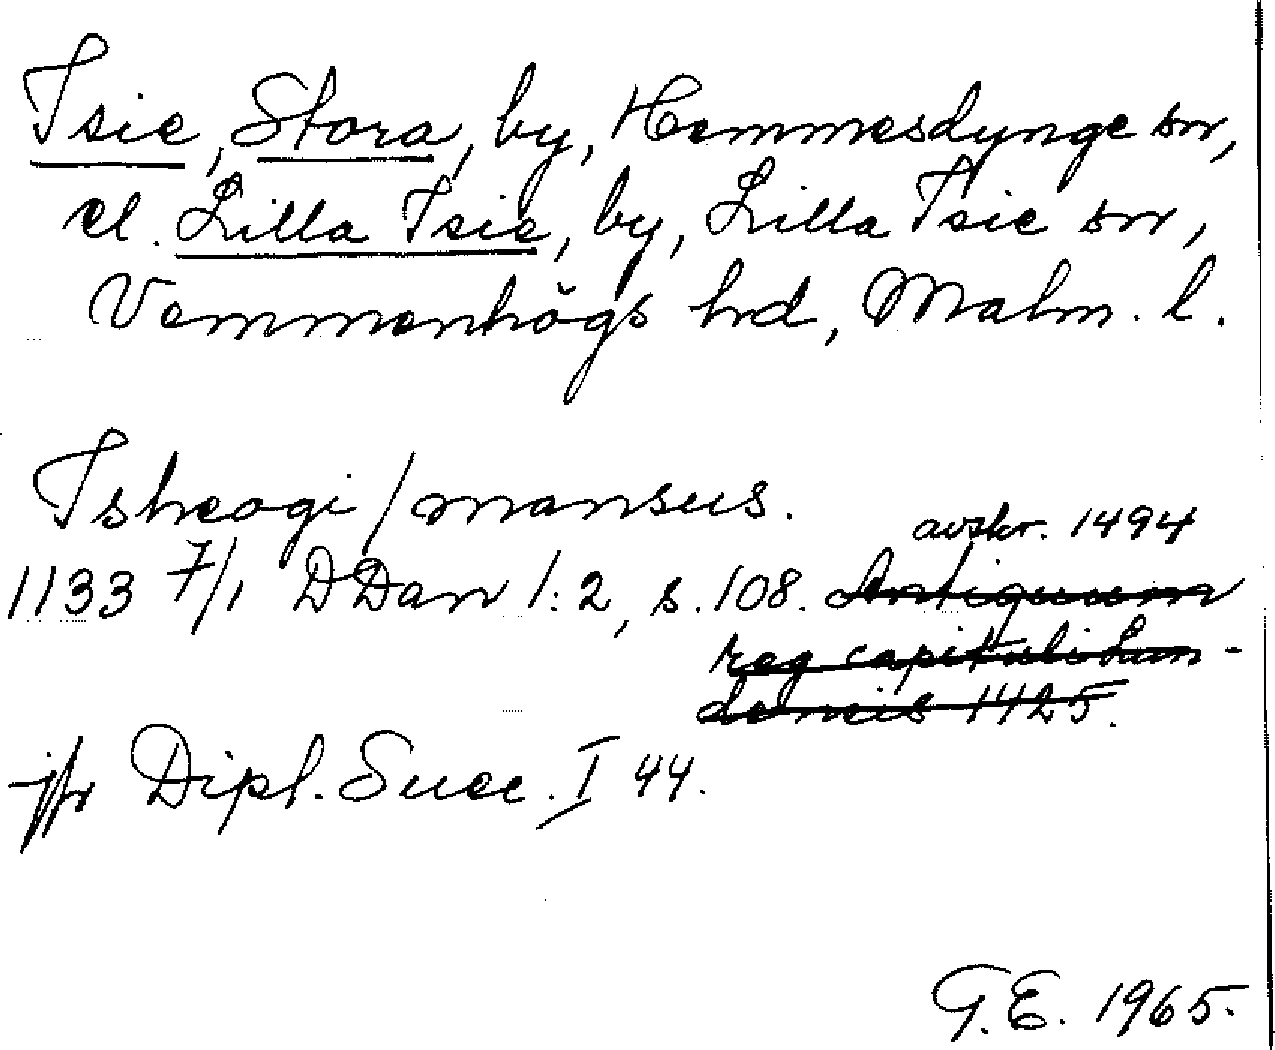 Isie, Stora, by, Hemmesdynge sn,
el. Lilla Isie, by, Lilla Isie sn,
Vemmenhögs hd, Malm. l.
Isheogi / mansus.
avskr. 1494
1133 7/1 DDan 1:2, s. 108. Antiquum
reg capituli Lun-
densis 1425.
jfr Dipl. Suec. I 44.
G.E. 1965.